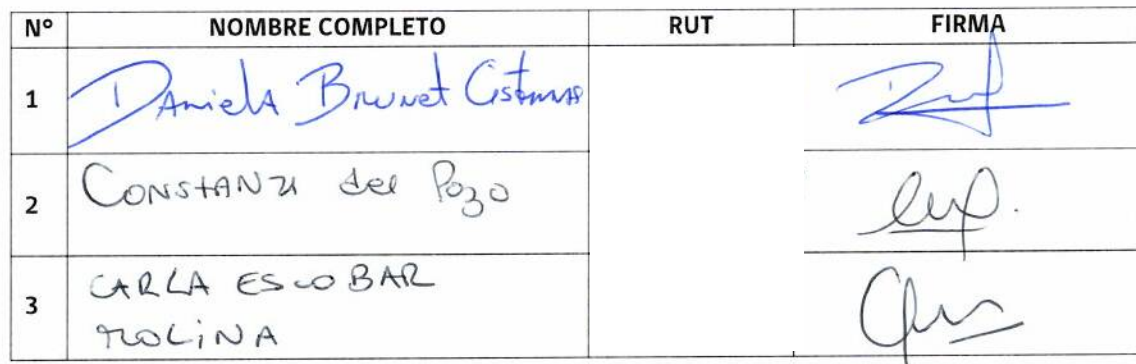 N° NOMBRE COMPLETO RUT FIRMA
1 Daniela Brunet Cisternas
2 Constanza del Pozo
3 CARLA ESCOBAR
MOLINA